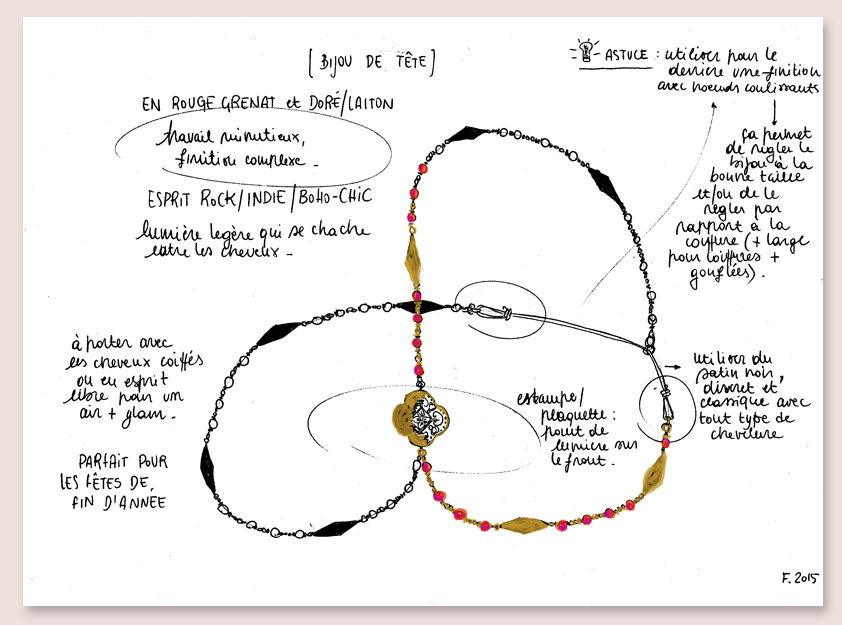 [BIJOU DE TÊTE]
EN ROUGE GRENAT et DORÉ/LAITON
travail minutieux,
finition complexe.
ESPRIT ROCK/INDIE/BOHO-CHIC
lumière legère qui se chache
entre les cheveux.
ASTUCE : utiliser pour le
derrière une finition
avec noeuds coulissants
ça permet
de régler le
bijou à la
bonne taille
et/ou de le
régler par
rapport à la
coiffure (+ large
pour coiffures +
gonflées).
à porter avec
les cheveux coiffés
ou en esprit
libre pour un
air + glam.
PARFAIT POUR
LES FÊTES DE
FIN D'ANNEE
estampe/
plaquette :
point de
lumière sur
le front.
utiliser du
satin noir,
discret et
classique avec
tout type de
chevelure
F. 2015